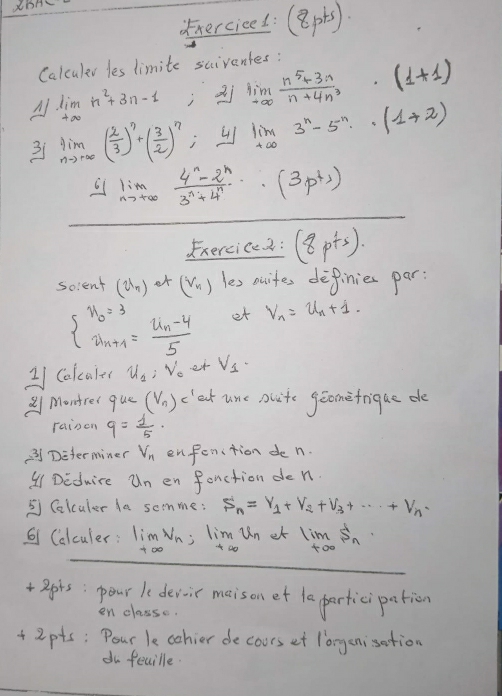 2BAC
Exercice 1: (8 pts).
Calculer les limite suivantes:
1) lim n²+3n-1 ; 2) lim (n⁵+3n)/(n+4n³) . (1+1)
+∞ +∞
3) lim (2/3)ⁿ+(3/2)ⁿ ; 4) lim 3ⁿ-5ⁿ . (1+2)
n→+∞ +∞
6) lim (4ⁿ-2ⁿ)/(3ⁿ+4ⁿ) . (3pts)
n→+∞
Exercice 2: (8 pts).
soient (Un) et (Vn) les suites définies par:
{ U0 = 3
Un+1 = (Un-4)/5 et Vn = Un+1.
1) Calculer U1 ; V0 et V1.
2) Montrer que (Vn) c'est une suite géométrique de
raison q = 1/5.
3) Déterminer Vn en fonction de n.
4) Déduire Un en fonction de n.
5) Calculer la somme: Sn = V1+V2+V3+...+Vn.
6) Calculer: lim Vn ; lim Un et lim Sn.
+∞ +∞ +∞
+2pts : pour le devoir maison et la participation
en classe.
+2pts : Pour le cahier de cours et l'organisation
du feuille.